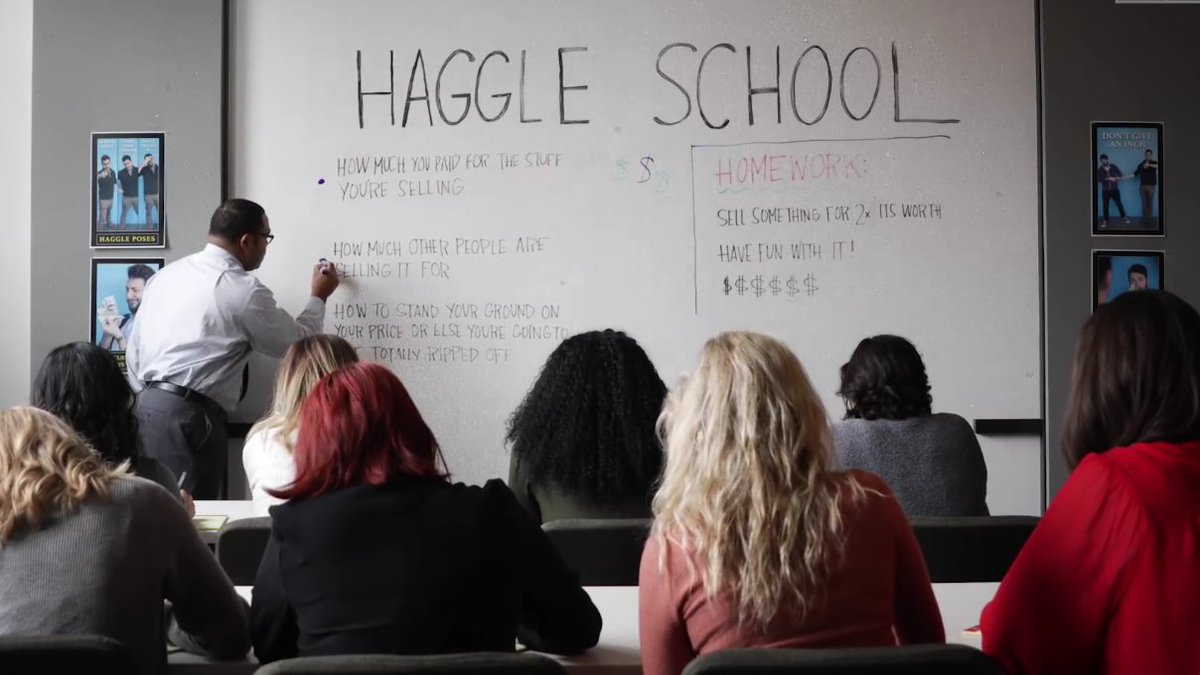 HAGGLE SCHOOL
HOW MUCH YOU PAID FOR THE STUFF
YOU'RE SELLING.
HOW MUCH OTHER PEOPLE ARE
SELLING IT FOR
HOW TO STAND YOUR GROUND ON
YOUR PRICE OR ELSE YOU'RE GOING TO
TOTALLY RIPPED OFF
$ $ $
HOMEWORK:
SELL SOMETHING FOR 2x ITS WORTH
HAVE FUN WITH IT!
$$$$$$
HAGGLE POSES
DON'T GIVE
AN INCH